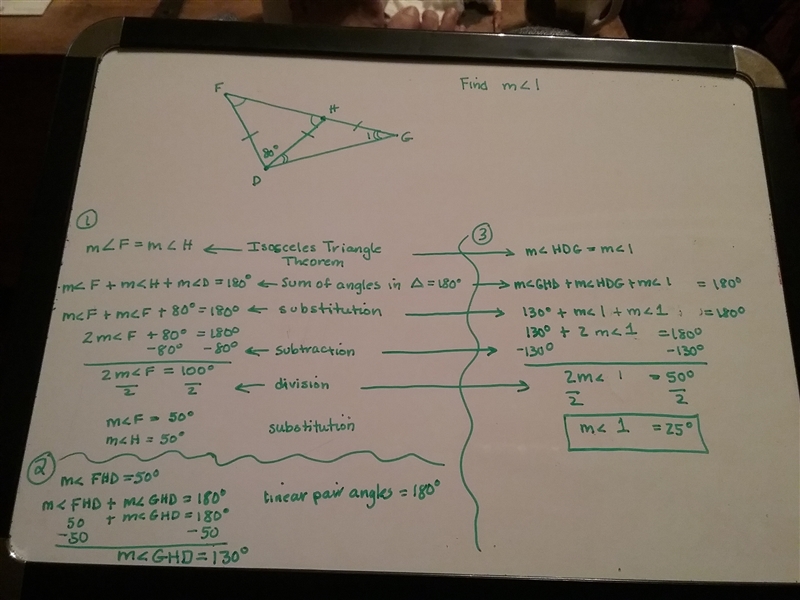 Find m∠1
F
H
1
G
80°
D
①
m∠F = m∠H ← Isosceles Triangle Theorem
m∠F + m∠H + m∠D = 180° ← Sum of angles in △ = 180°
m∠F + m∠F + 80° = 180° ← substitution
2m∠F + 80° = 180°
-80° -80° ← subtraction
2m∠F = 100°
2 2 ← division
m∠F = 50°
m∠H = 50° substitution
②
m∠FHD = 50°
m∠FHD + m∠GHD = 180° linear pair angles = 180°
50 + m∠GHD = 180°
-50 -50
m∠GHD = 130°
③
→ m∠HDG = m∠1
→ m∠GHD + m∠HDG + m∠1 = 180°
→ 130° + m∠1 + m∠1 = 180°
130° + 2m∠1 = 180°
→ -130° -130°
2m∠1 = 50°
→ 2 2
m∠1 = 25°